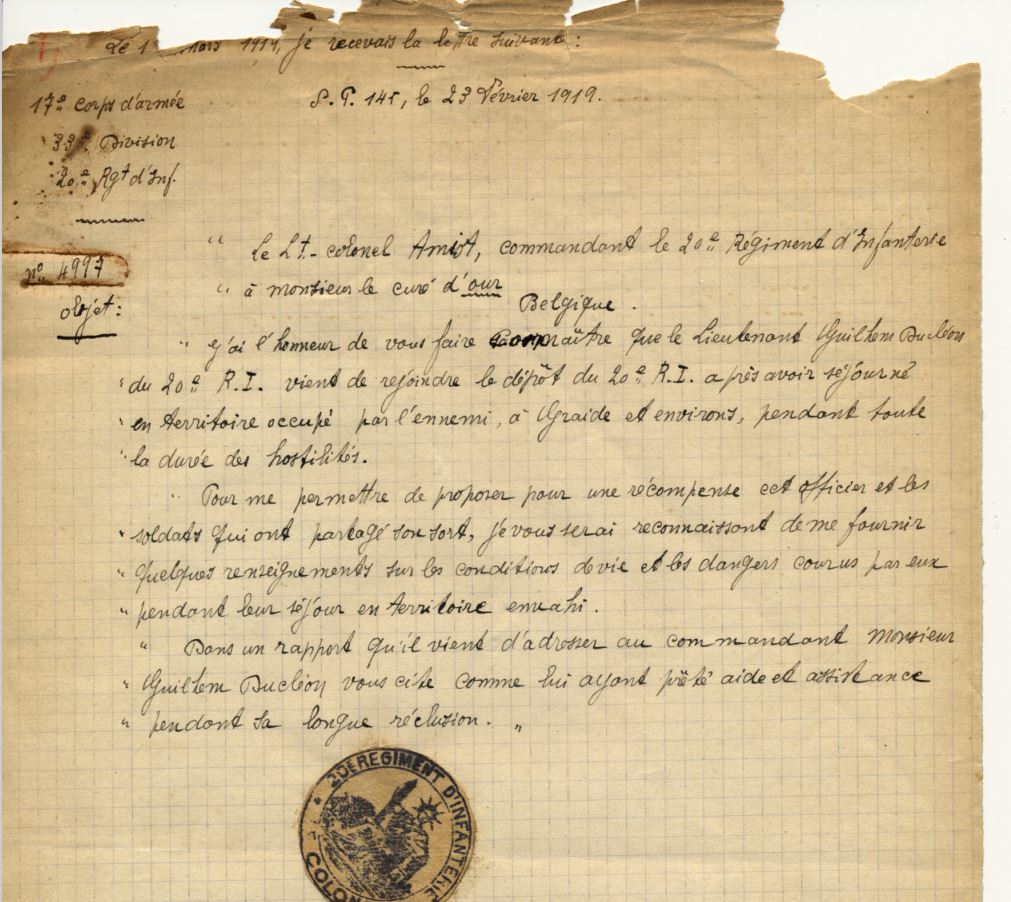 Le 1 mars 1919, je recevais la lettre suivante :
17e corps d'armée
S. P. 145, le 23 Février 1919.
33e Division
20e Rgt d'Inf.
" Le Lt-colonel Amiot, commandant le 20e Régiment d'Infanterie
n° 4997
" à monsieur le curé d'our
Belgique.
objet :
" J'ai l'honneur de vous faire connaître que le Lieutenant Guilhem Ducléon
" du 20e R.I. vient de rejoindre le dépôt du 20e R.I. après avoir séjourné
" en territoire occupé par l'ennemi, à Graide et environs, pendant toute
" la durée des hostilités.
" Pour me permettre de proposer pour une récompense cet officier et les
" soldats qui ont partagé son sort, je vous serai reconnaissant de me fournir
" quelques renseignements sur les conditions de vie et les dangers courus par eux
" pendant leur séjour en territoire envahi.
" Dans un rapport qu'il vient d'adresser au commandant Monsieur
" Guilhem Ducléon vous cite comme lui ayant prêté aide et assistance
" pendant sa longue réclusion. "
20E REGIMENT D'INFANTERIE
COLON